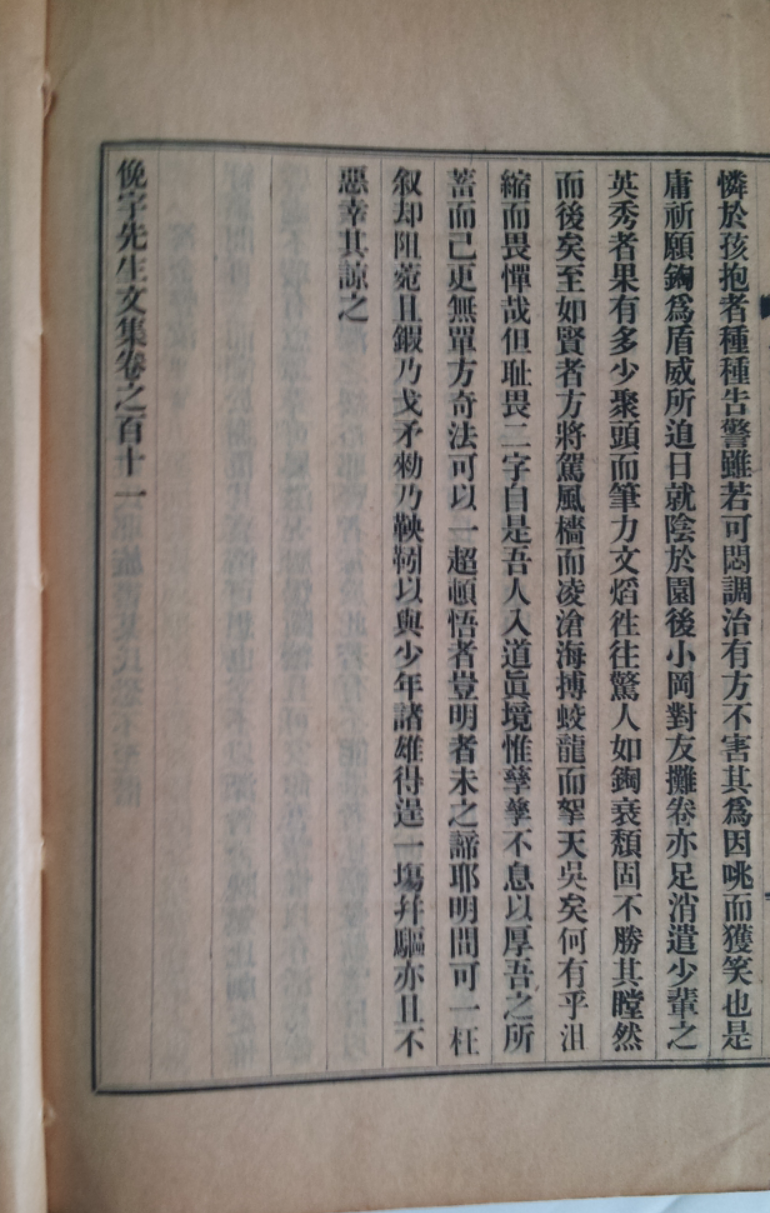 憐於孩抱者種種告警雖若可悶調治有方不害其爲因咷而獲笑也是
庸祈願鋾爲盾威所迫日就陰於園後小岡對友攤卷亦足消遣少輩之
英秀者果有多少聚頭而筆力文熖徃往驚人如鋾衰頹固不勝其瞠然
而後矣至如賢者方將駕風檣而凌滄海搏蛟龍而拏天吳矣何有乎沮
縮而畏憚哉但耻畏二字自是吾人入道眞境惟孶孶不息以厚吾之所
蓄而已更無單方奇法可以一超頓悟者豈明者未之諦耶明間可一枉
叙却阻菀且鍜乃戈矛勑乃鞅靷以與少年諸雄得逞一塲幷驅亦且不
惡幸其諒之
俛宇先生文集卷之百十一